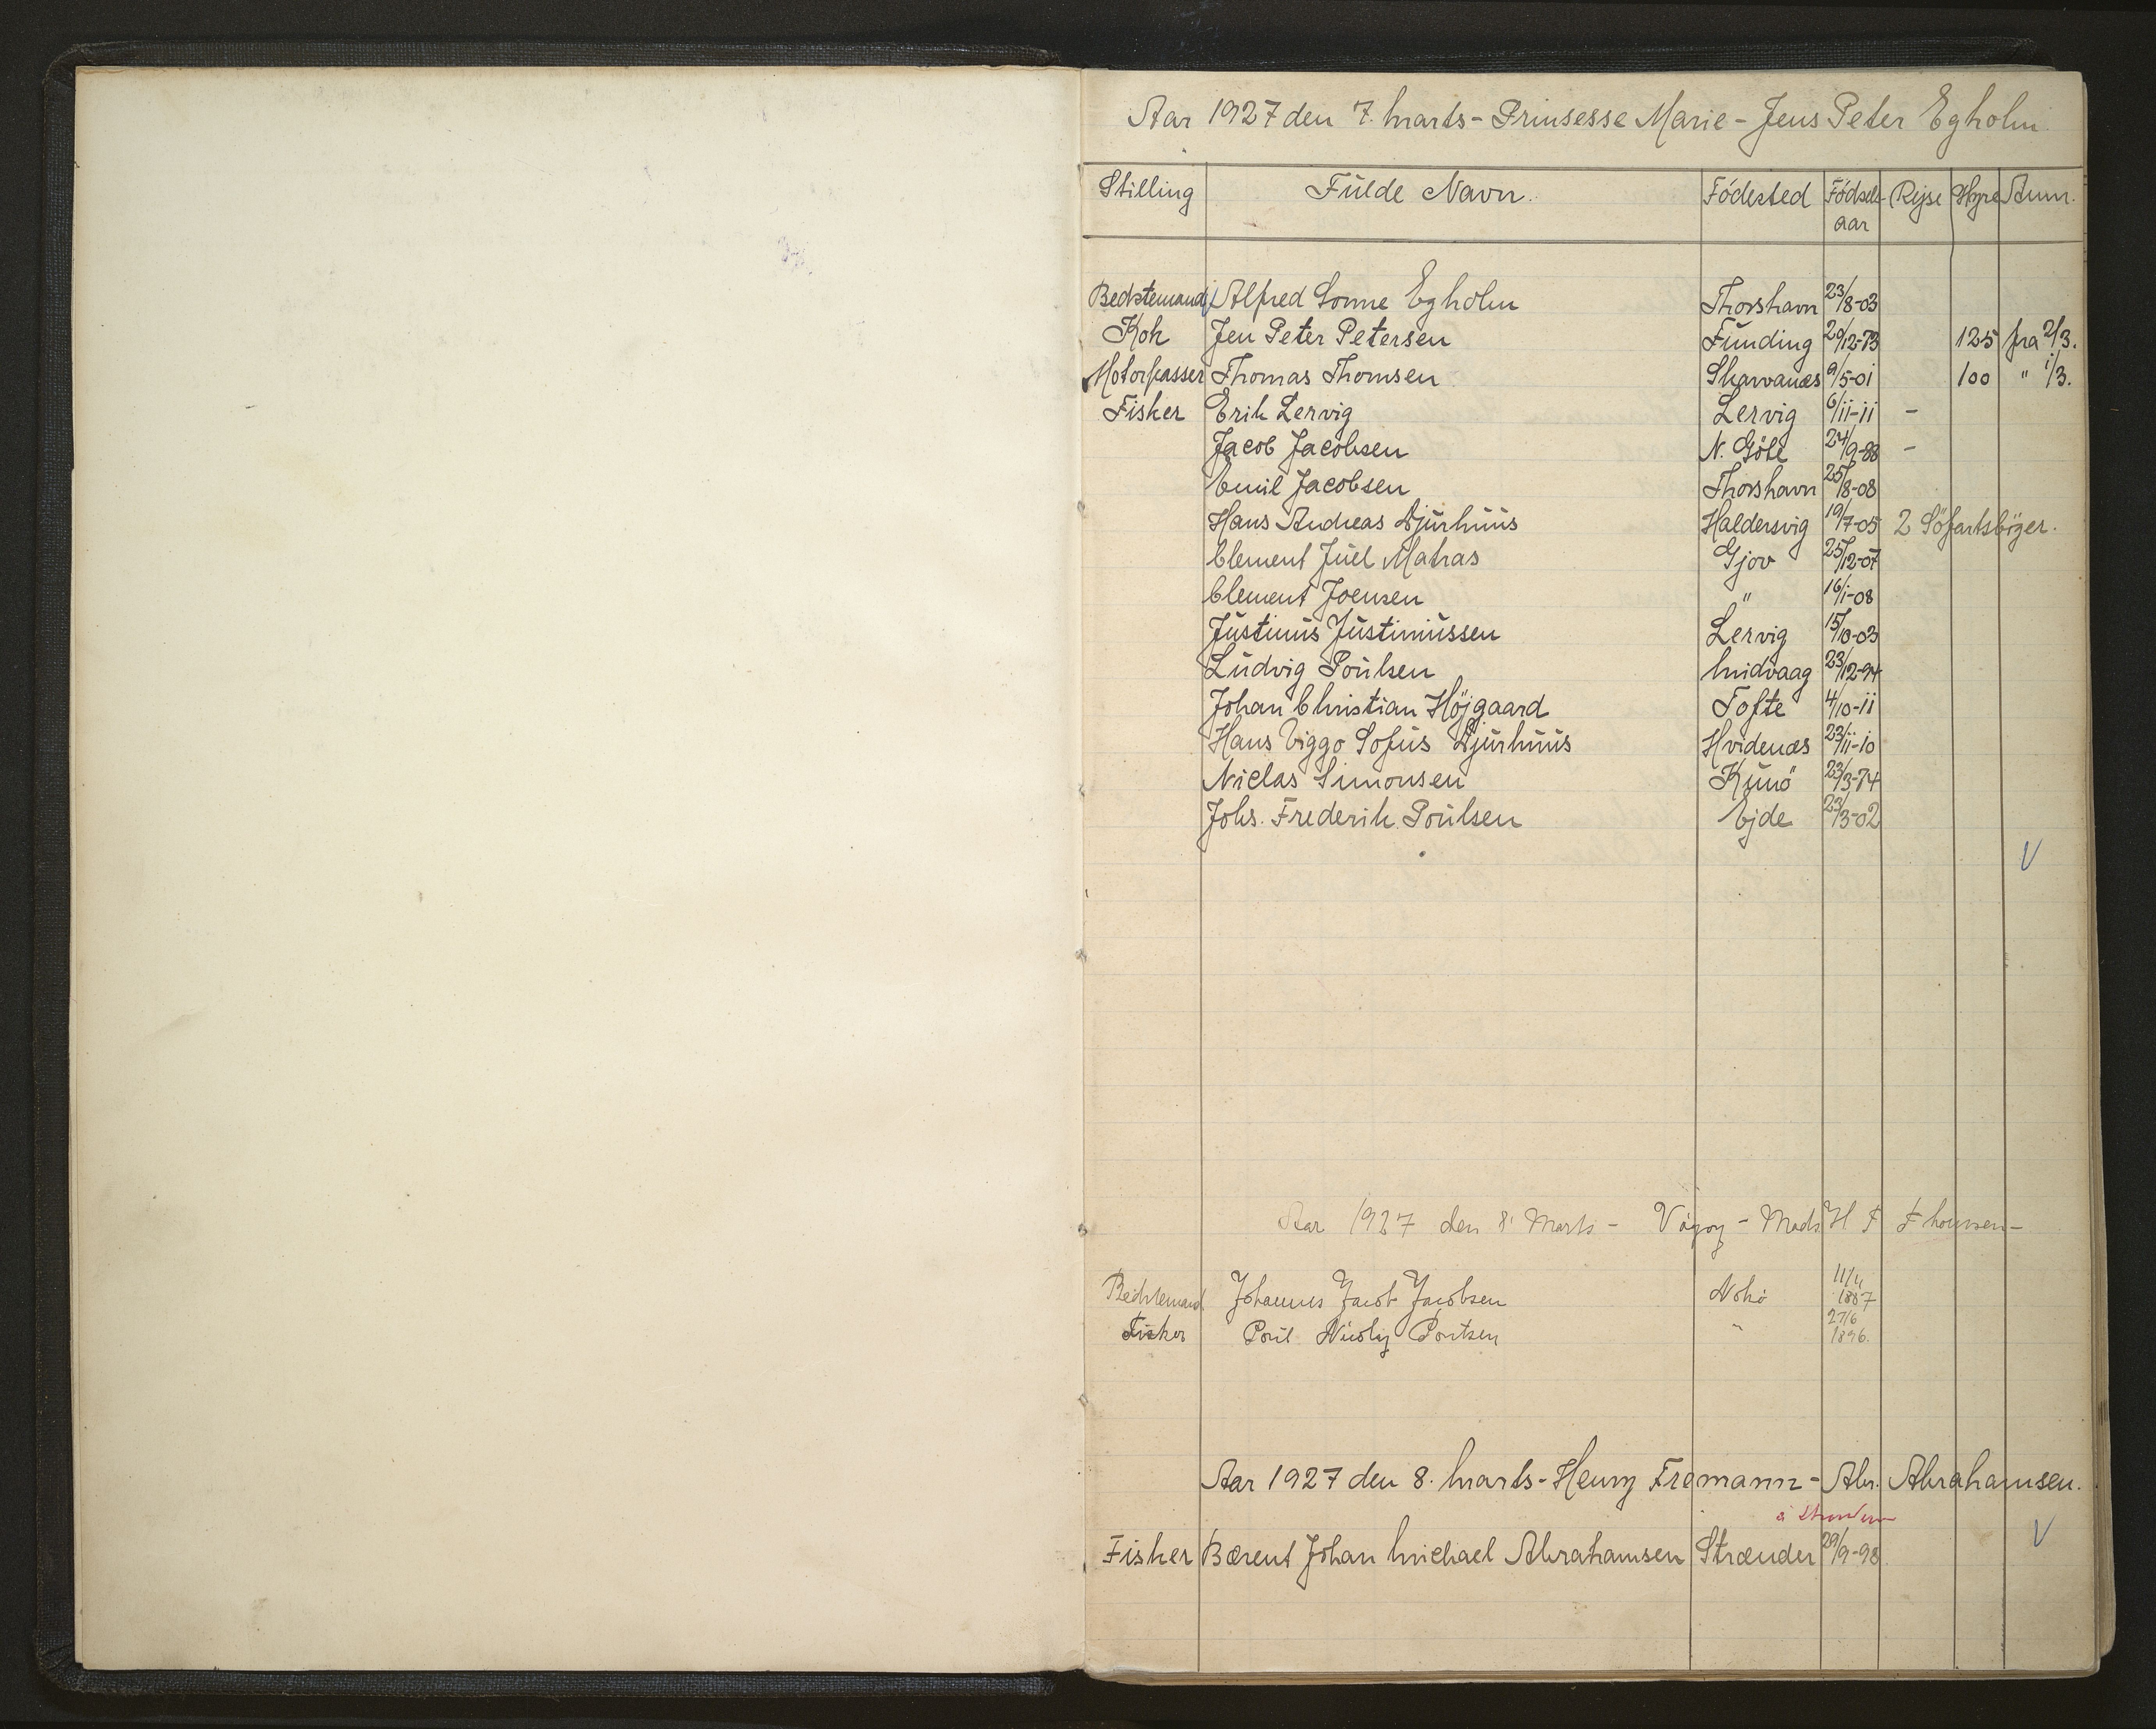 Aar 1927 den 7. Marts - Prinsesse Marie - Jens Peter Egholm
Stilling Fulde Navn. Födested Födsels- Rejse Hyre Anm.
aar
Bedstemand Alfred Sonne Egholm Thorshavn 23/8-03
Kok Jen Peter Petersen Funding 29/12-73 125 fra 2/3.
Motorpasser Thomas Thomsen Skarvanæs 9/5-01 100 " 1/3.
Fisker Erik Lervig Lervig 6/11-11 -
Jacob Jacobsen N. Göte 24/9-88 -
Emil Jacobsen Thorshavn 25/8-08
Hans Andreas Djurhuus Haldersvig 19/7-05 2 Söfartsböger.
Clement Juel Matras Gjov 25/12-07
Clement Joensen " 16/1-08
Justinus Justinussen Lervig 15/10-03
Ludvig Poulsen Midvaag 23/12-94
Johan Christian Höjgaard Tofte 4/10-11
Hans Viggo Sofus Djurhuus Hvidenæs 23/11-10
Niclas Simonsen Kunö 23/3-74
Johs. Frederik Poulsen Ejde 23/3-02
Aar 1927 den 8' Marts - Vágoy - Mads H F Thomsen -
Bedstemand Johannes Jacob Jacobsen Nolsö 11/4
1887
Fisker Poul Nicolaj Poulsen " 27/6
1896.
Aar 1927 den 8. Marts - Henry Freemann - Abr. Abrahamsen.
Fisker Bærent Johan Michael Abrahamsen Strænder 29/9-98